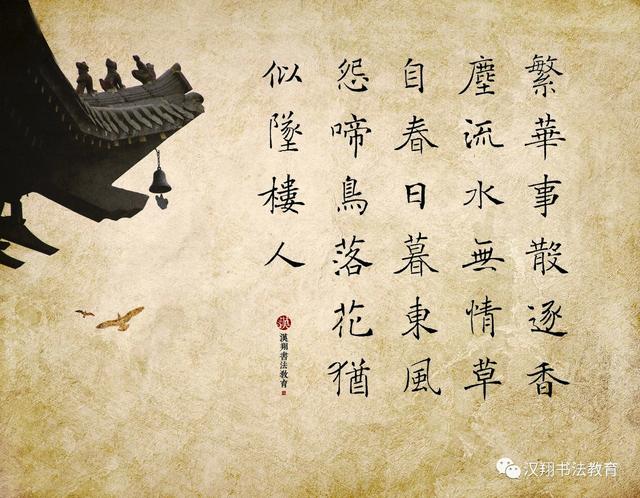 繁華事散逐香
塵流水無情草
自春日暮東風
怨啼鳥落花猶
似墜樓人
漢
漢翔書法教育
汉翔书法教育